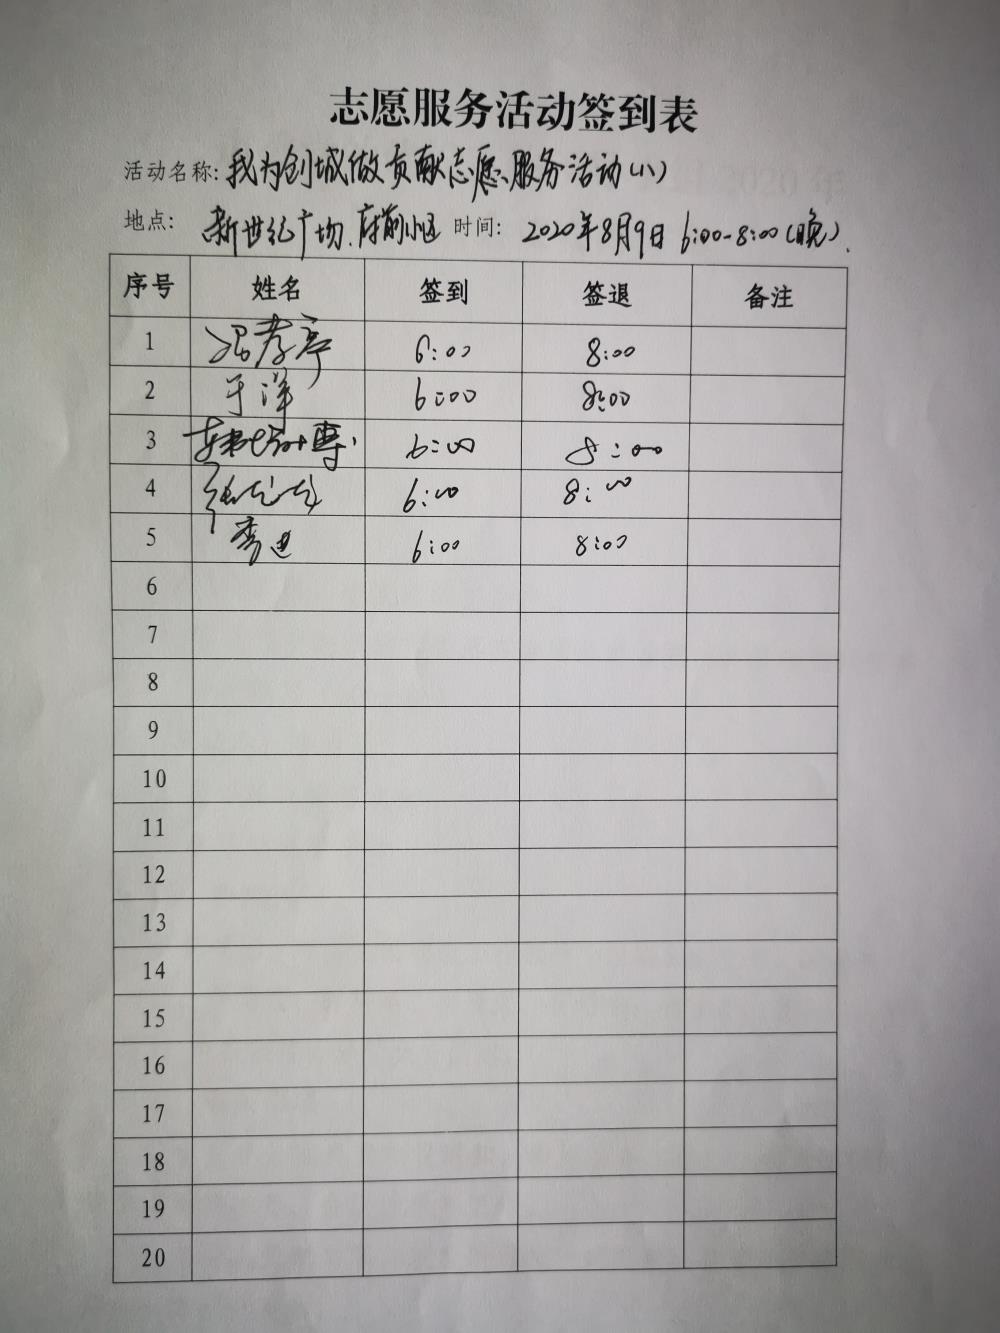 志愿服务活动签到表
活动名称: 我为创城做贡献志愿服务活动(八)
地点: 新世纪广场、府前小区 时间: 2020年8月9日 6:00-8:00(晚).
序号 姓名 签到 签退 备注
1 6:00 8:00
2 于洋 6:00 8:00
3 6:00 8:00
4 6:00 8:00
5 李进 6:00 8:00
6
7
8
9
10
11
12
13
14
15
16
17
18
19
20